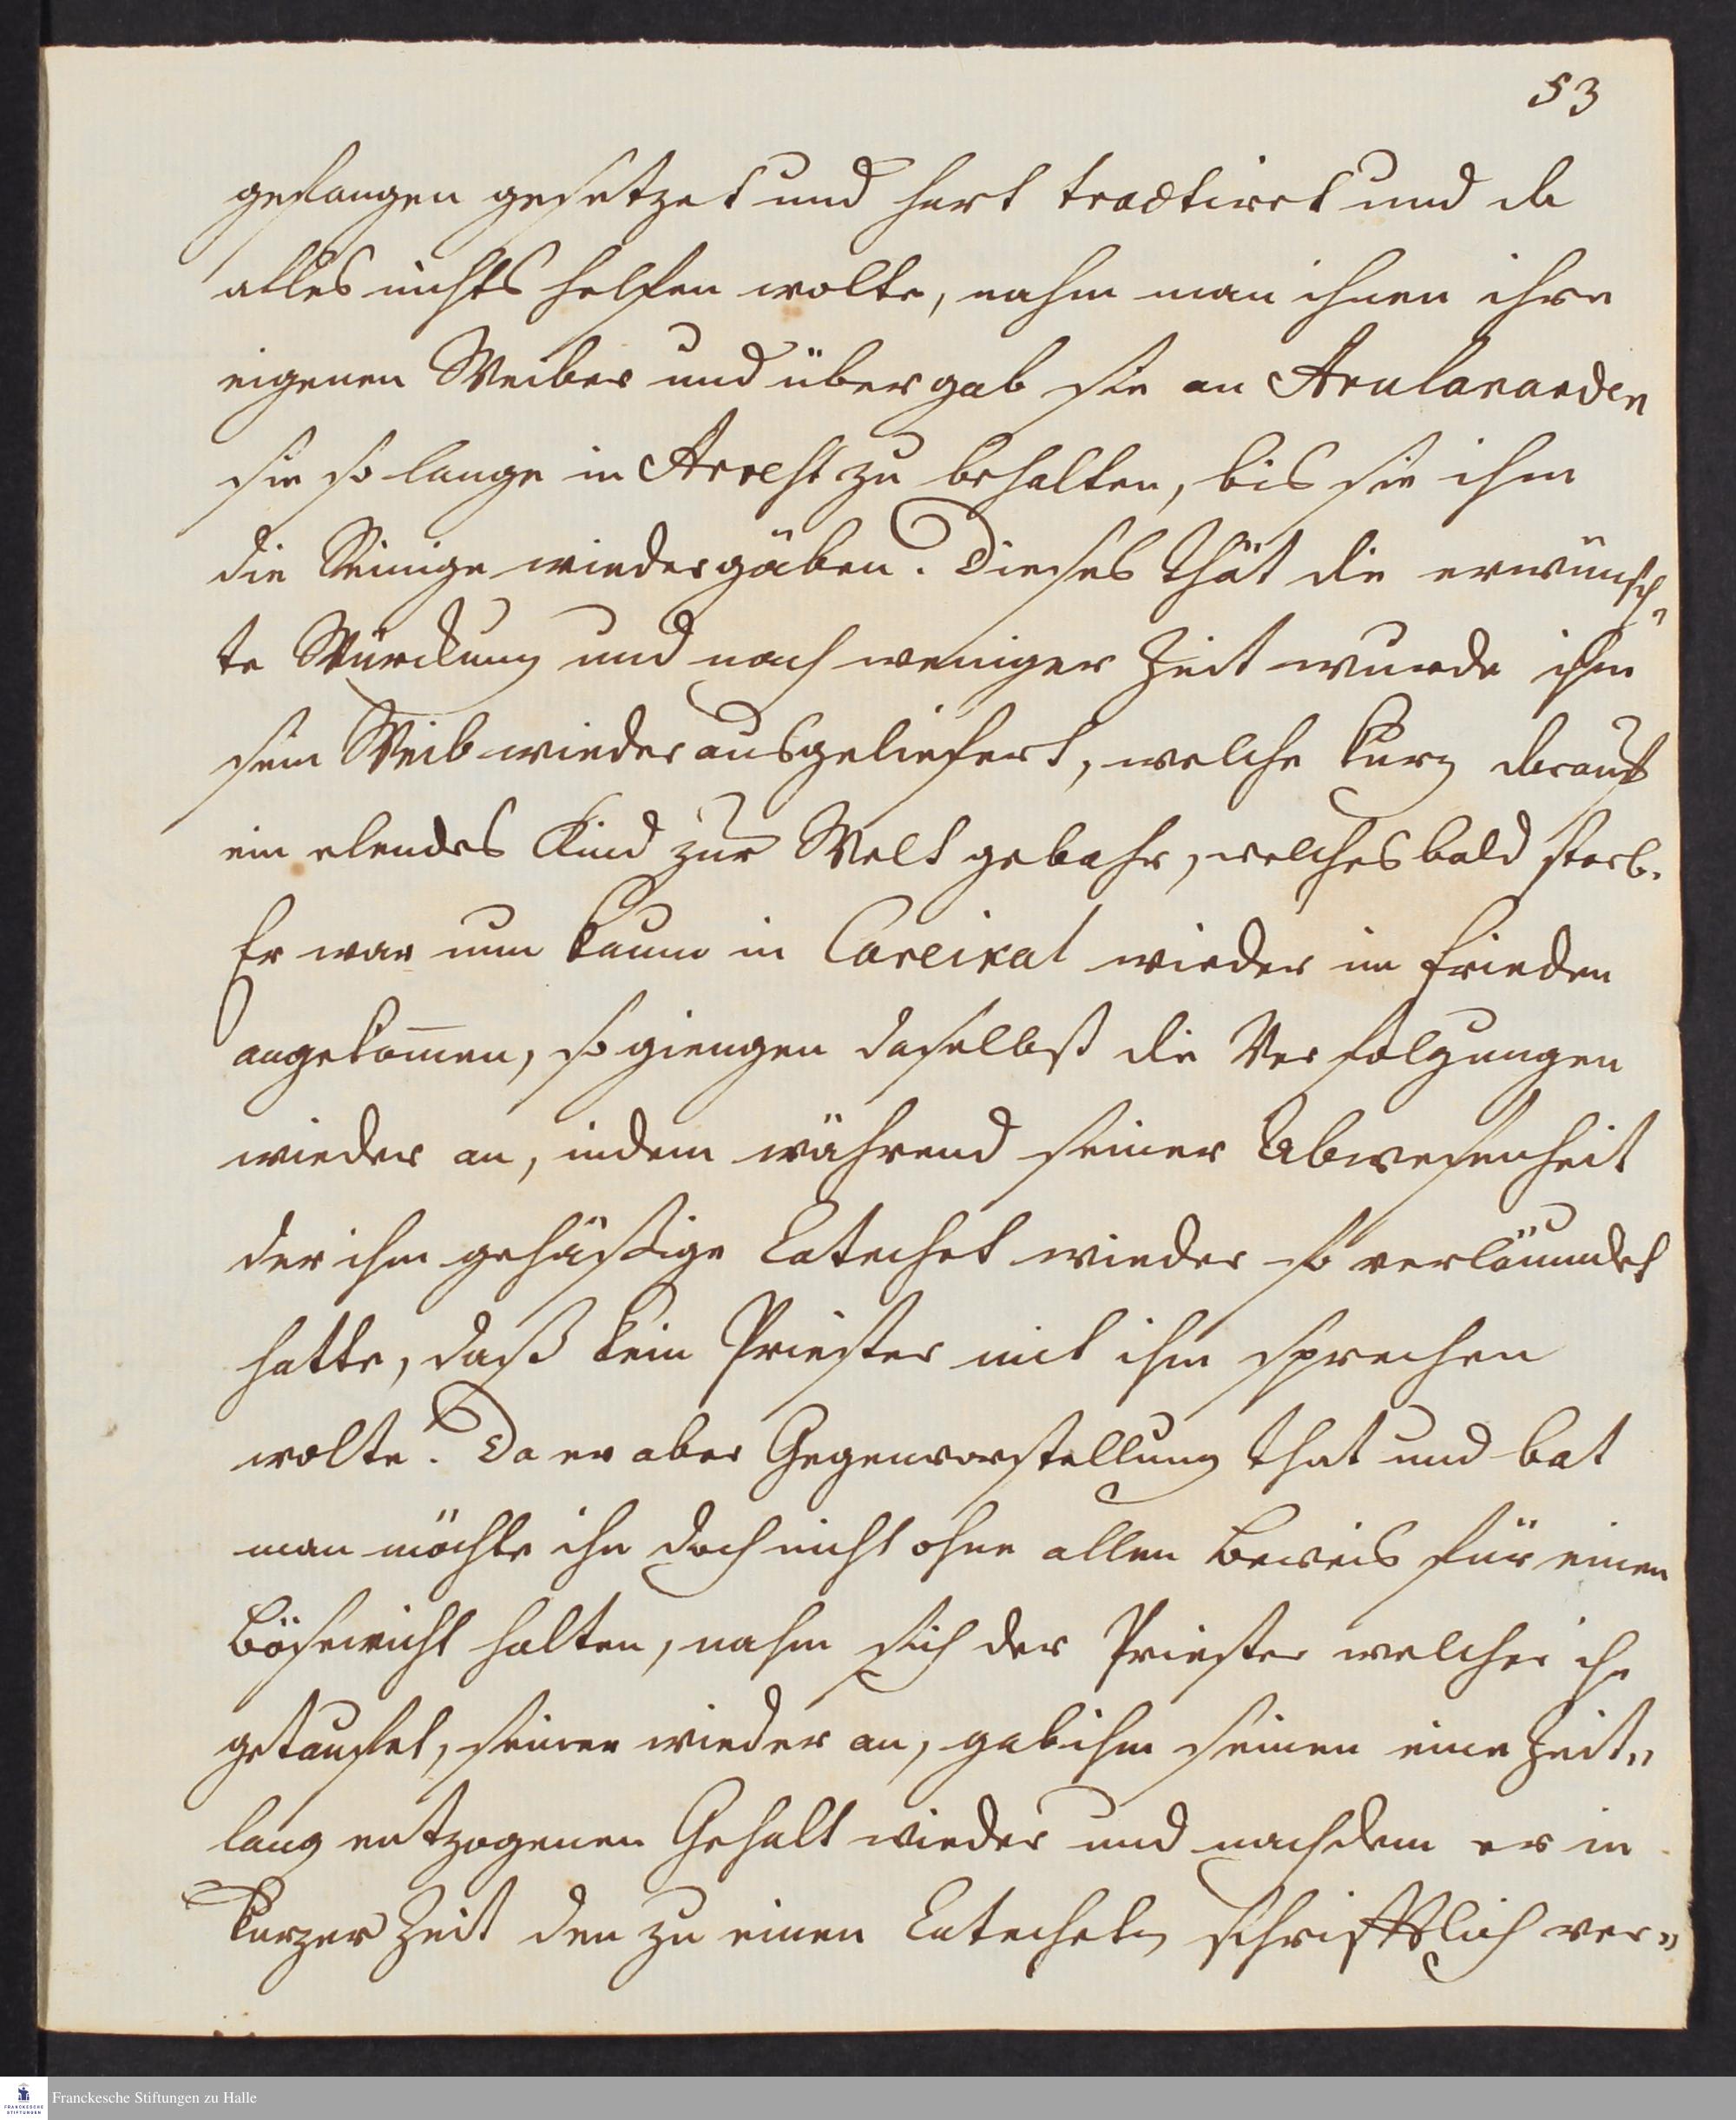 53
gefangen gesetzet und hart tractiret und da
alles nichts helfen wolte, nahm man ihnen ihre
eigenen Weiber und übergab sie an Arulananden
sie so lange in Arrest zu behalten, bis sie ihm
die Seinige wiedergäben. Dieses thät die erwünsch-
te Würckung und nach weniger Zeit wurde ihm
sein Weib wieder ausgeliefert, welche kurz darauf
ein elendes Kind zur Welt gebahr, welches bald starb.
Er war nun kaum in Careikal wieder in Frieden
angekom̄en, so giengen daselbst die Verfolgungen
wieder an, indem während seiner Abwesenheit
der ihm gehässige Catechet wieder so verläumdet
hatte, daß kein Priester mit ihm sprechen
wolte. Da er aber Gegenvorstellung that und bat
man möchte ihn doch nicht ohne allen Beweis für einen
Bösewicht halten, nahm sich der Priester welcher ihn
getaufet, seiner wieder an, gab ihm seinen eine Zeit-
lang entzogenen Gehalt wieder und nachdem er in
kurzer Zeit den zu einen Catecheten schrifftlich ver-
Franckesche Stiftungen zu Halle
FRANCKESCHE
STIFTUNGEN